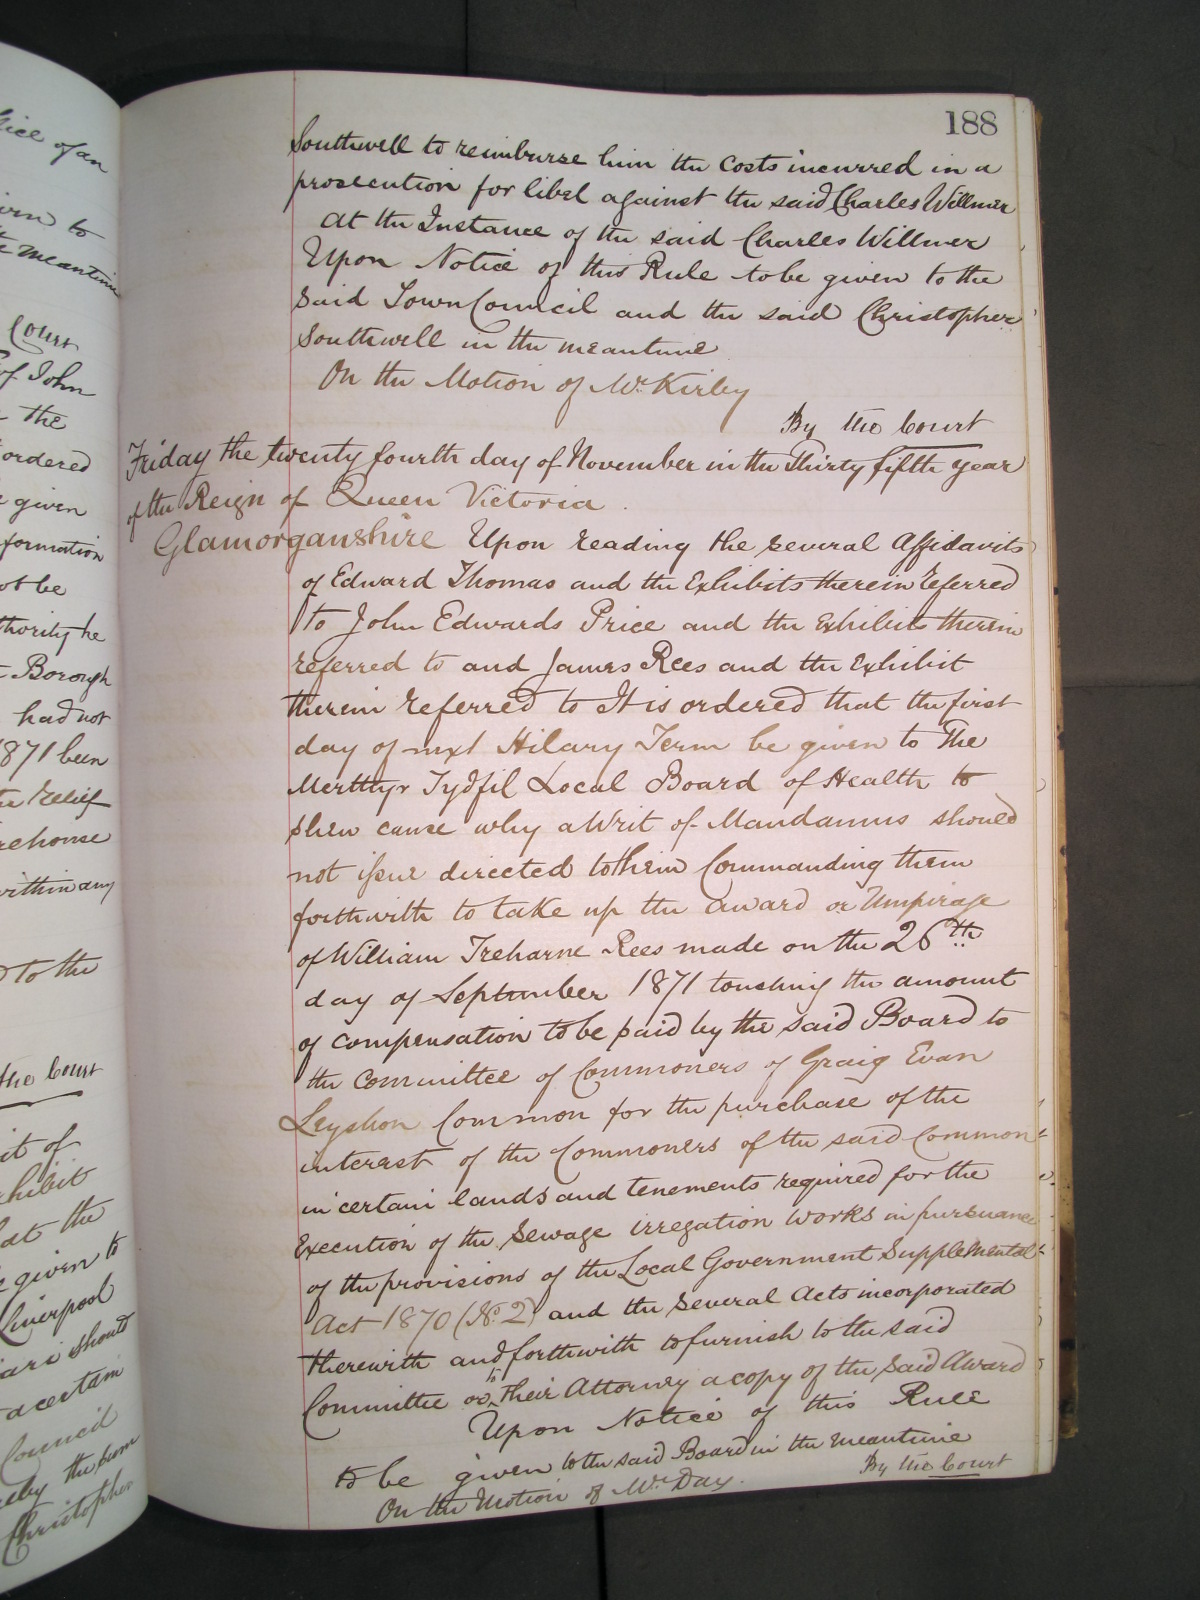 188
Southwell to reimburse him the costs incurred in a
prosecution for libel against the said Charles Willmer
At the Instance of the said Charles Willmer
Upon Notice of this Rule to be given to the
said Town Council and the said Christopher
Southwell in the meantime
On the Motion of Mr. Kirby
By the Court
Friday the twenty fourth day of November in the Thirty fifth year
of the Reign of Queen Victoria.
Glamorganshire Upon reading the several Affidavits
of Edward Thomas and the Exhibits therein referred
to John Edwards Price and the Exhibits therein
referred to and James Rees and the Exhibit
therein referred to It is ordered that the first
day of next Hilary Term be given to The
Merthyr Tydfil Local Board of Health to
shew cause why a Writ of Mandamus should
not issue directed to them Commanding them
forthwith to take up the award or Umpirage
of William Treharne Rees made on the 26th
day of September 1871 touching the amount
of compensation to be paid by the said Board to
the Committee of Commoners of Graig Evan
Leyshon Common for the purchase of the
interest of the Commoners of the said Common
in certain lands and tenements required for the
Execution of the Sewage irregation Works in pursuance
of the provisions of the Local Government Supplemental
Act 1870 (No. 2) and the several Acts incorporated
therewith and forthwith to furnish to the said
Committee or to their Attorney a copy of the said Award
Upon Notice of this Rule
to be given to the said Board in the meantime
On the Motion of Mr. Day.
By the Court
of an
to
meantime
Court
of John
the
ordered
given
formation
not be
he
Borough
had not
1871 been
Relief
within any
to the
the Court
it of
Exhibit
that the
given to
Liverpool
should
a certain
Council
the
Christopher